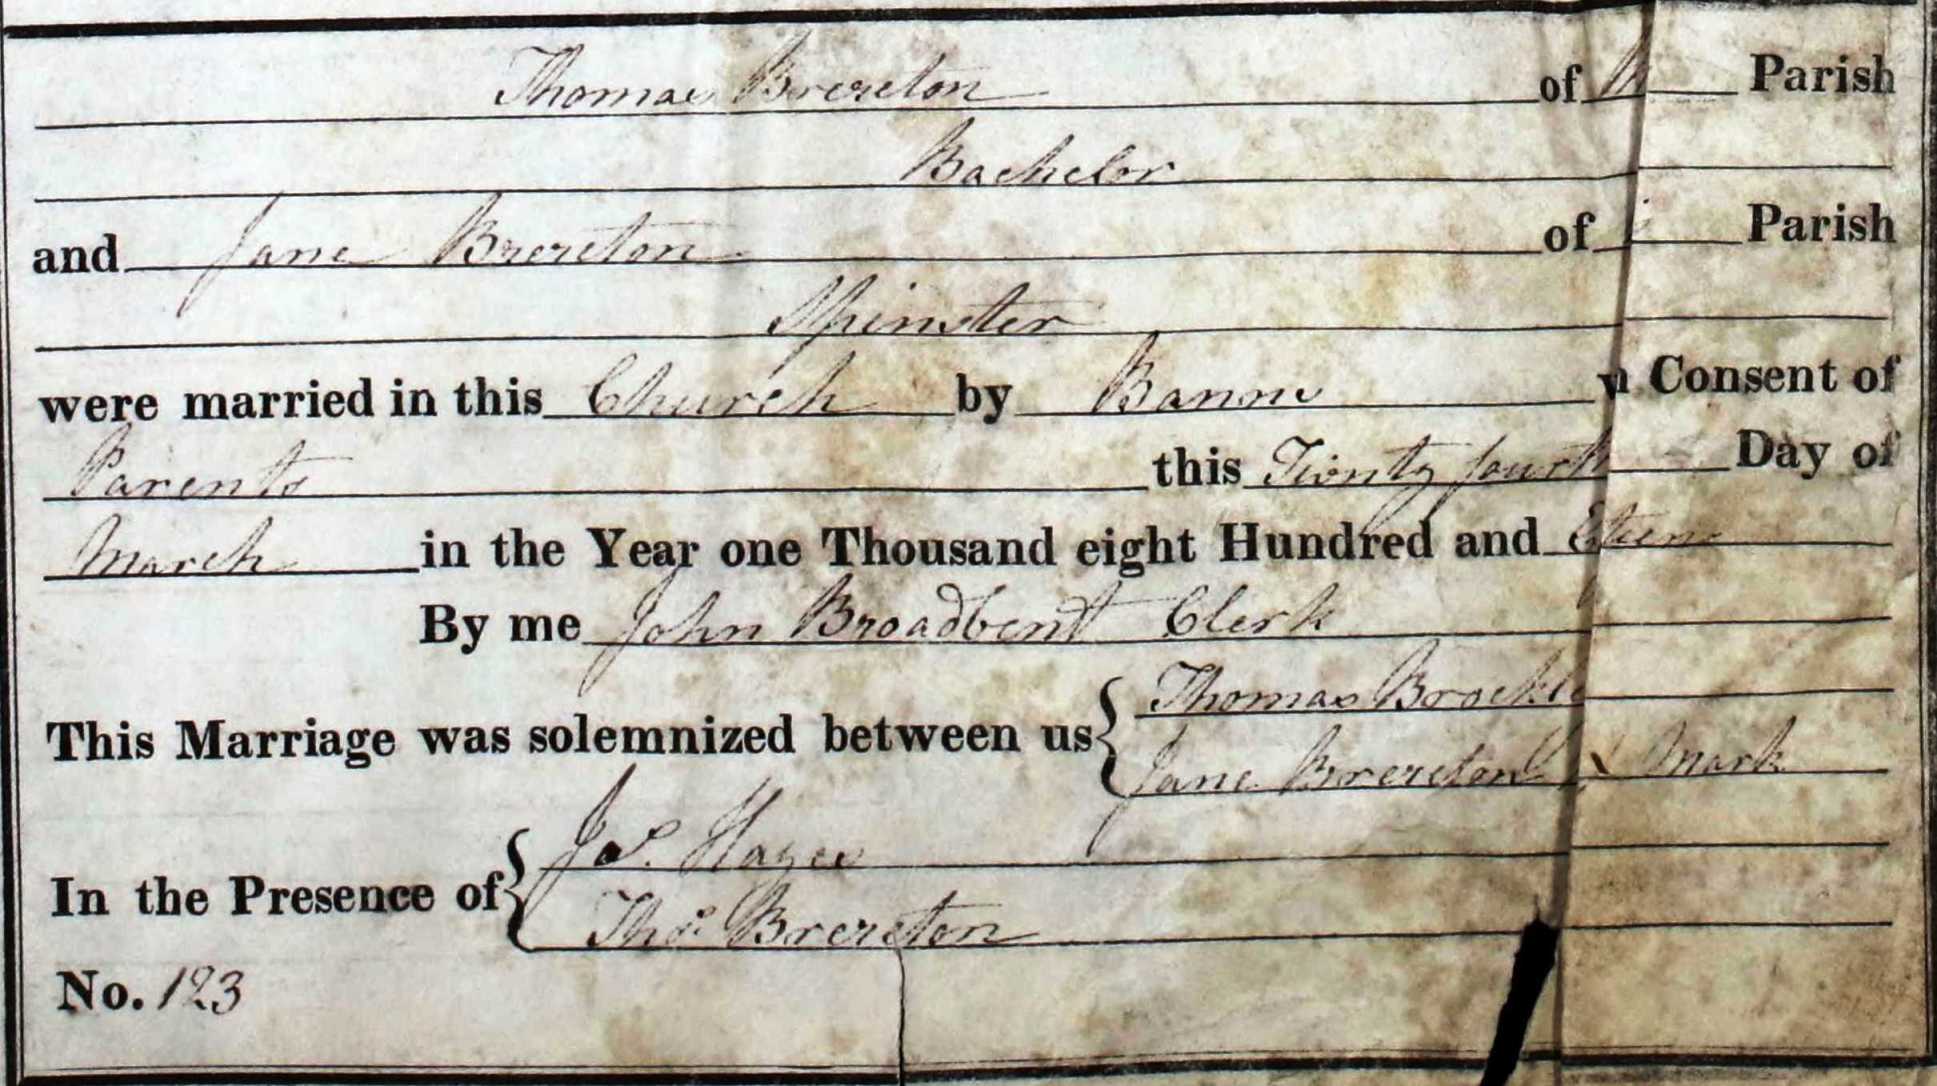 Thomas Brereton of Parish
Bachelor
and Jane Brereton of Parish
Spinster
were married in this Church by Banns Consent of
Parents this Twenty fourth Day of
March in the Year one Thousand eight Hundred and
By me John Broadbent Clerk
This Marriage was solemnized between us { Thomas
Jane Brereton X Mark
In the Presence of { Jas. Hayes
Thos. Brereton
No. 123